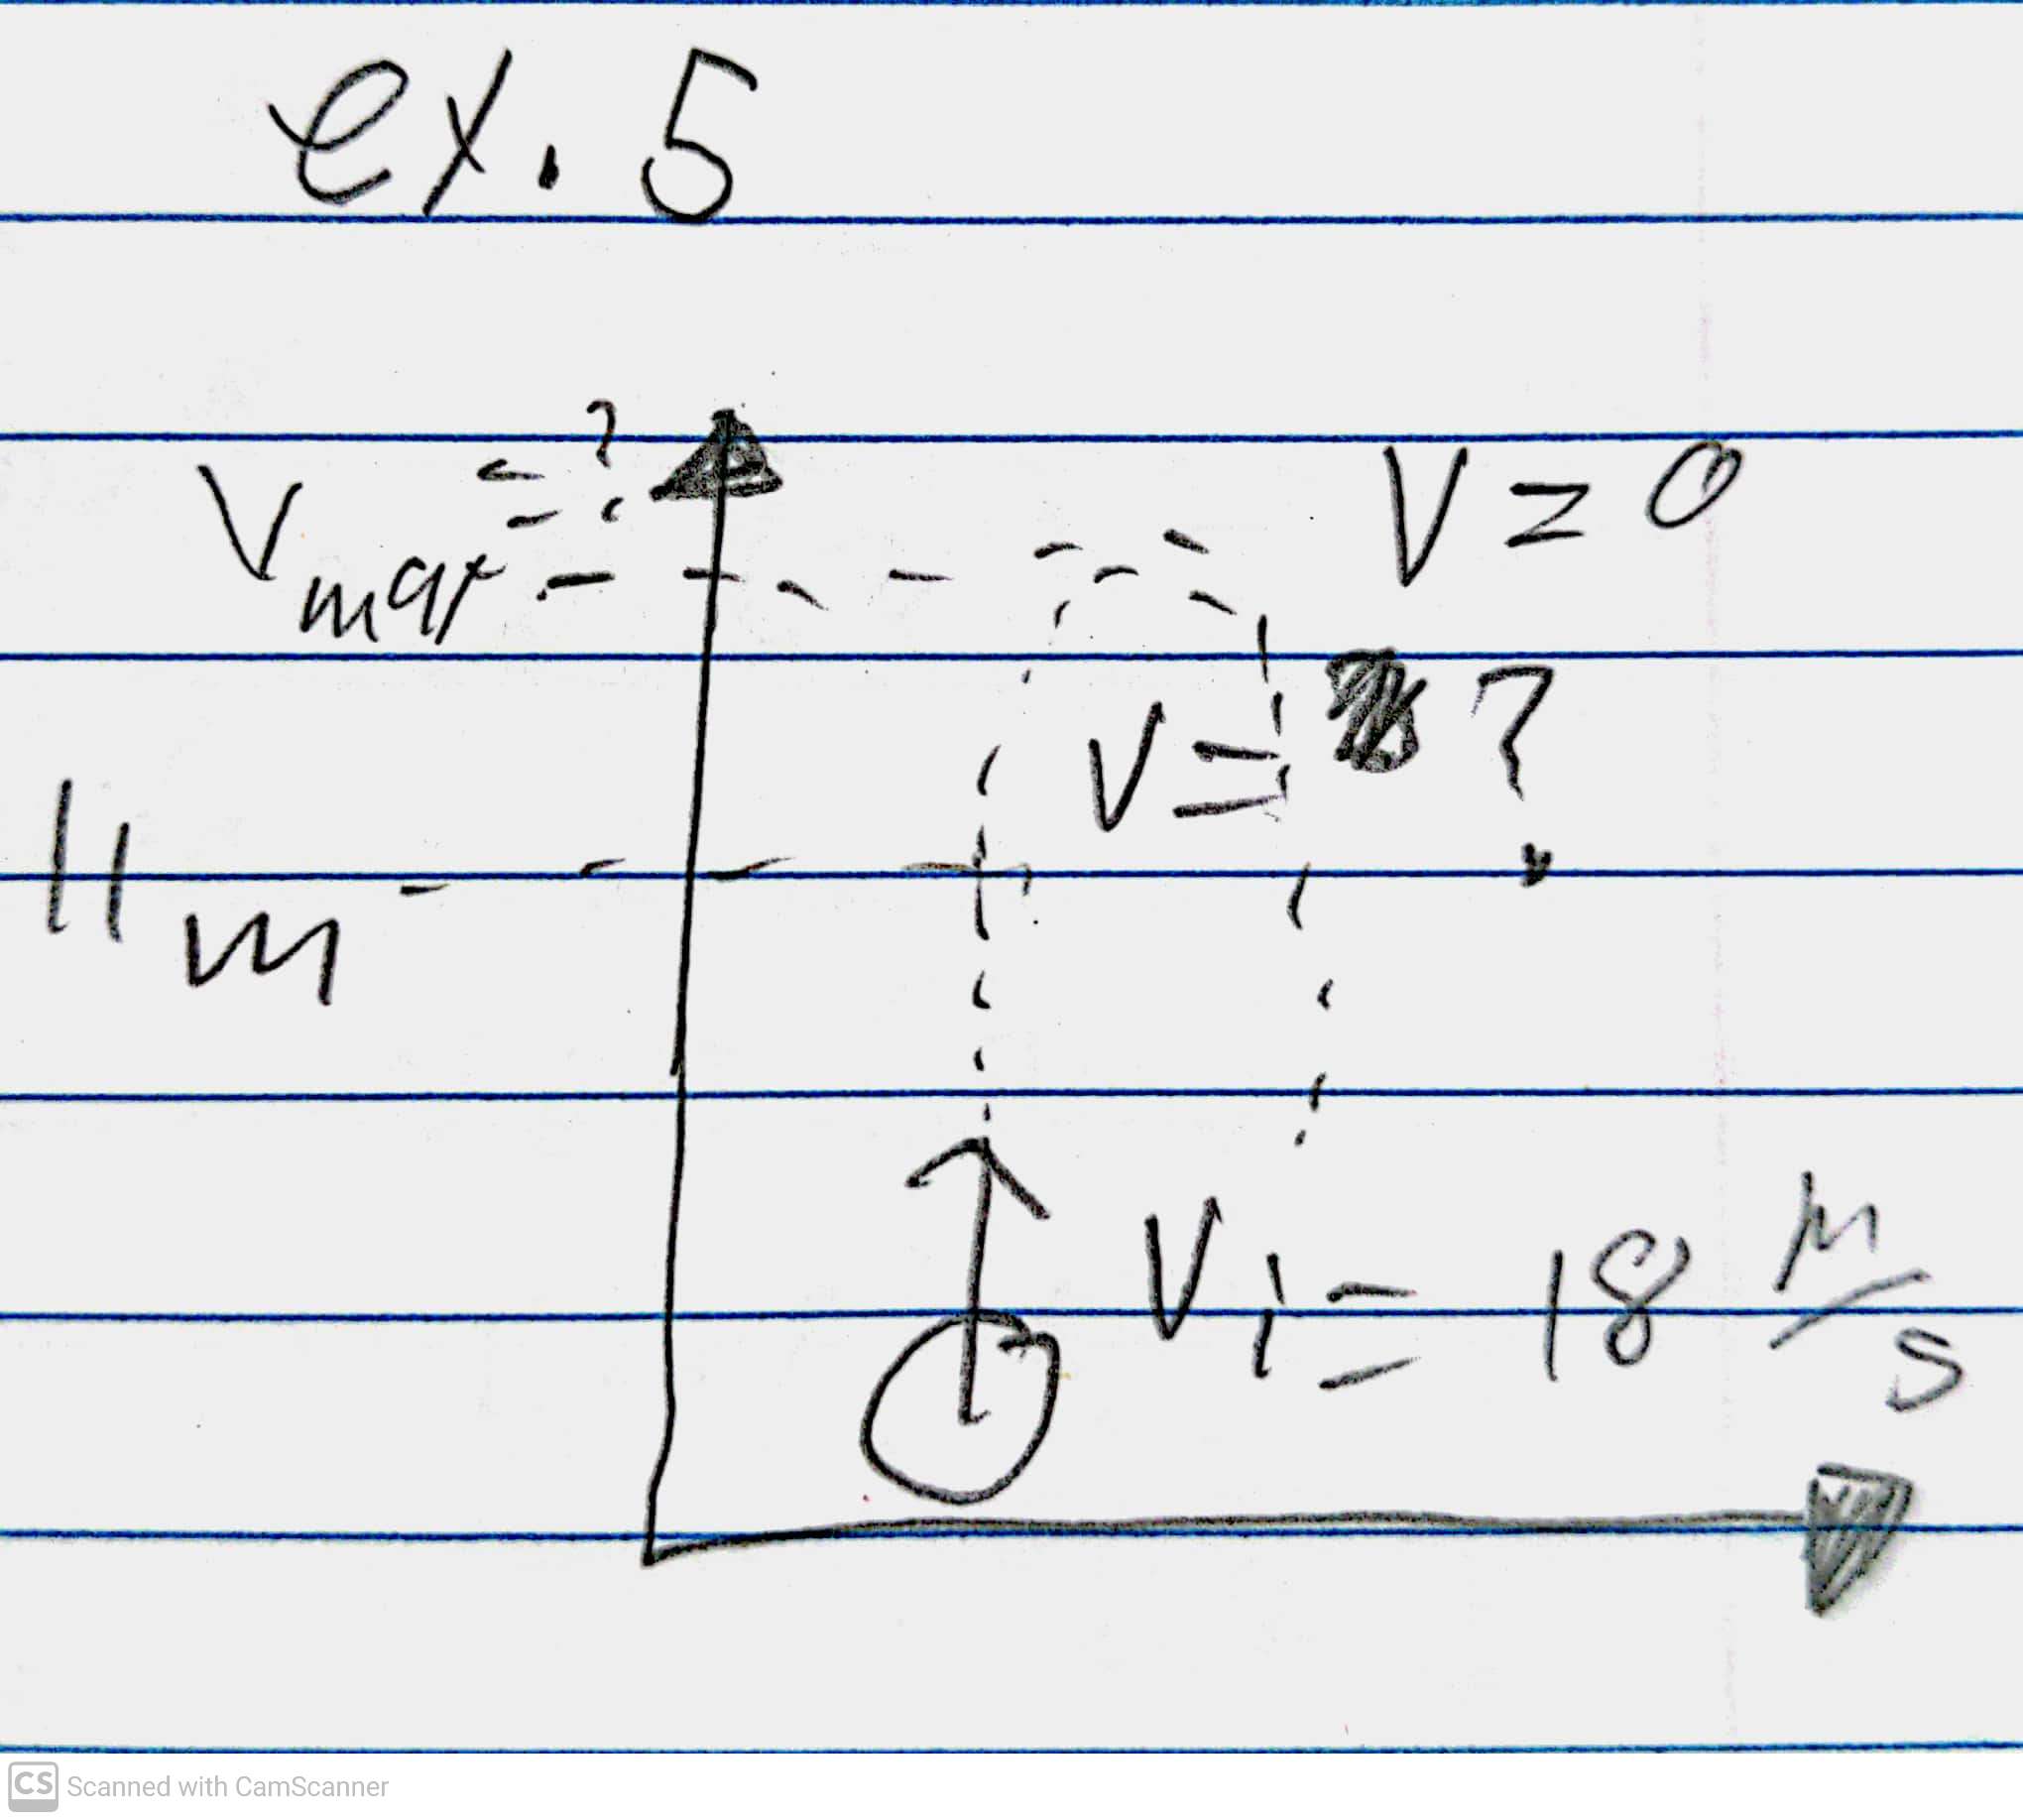 ex. 5
V max = ?
V = 0
V = ?
11 m
Vi = 18 m/s
CS Scanned with CamScanner